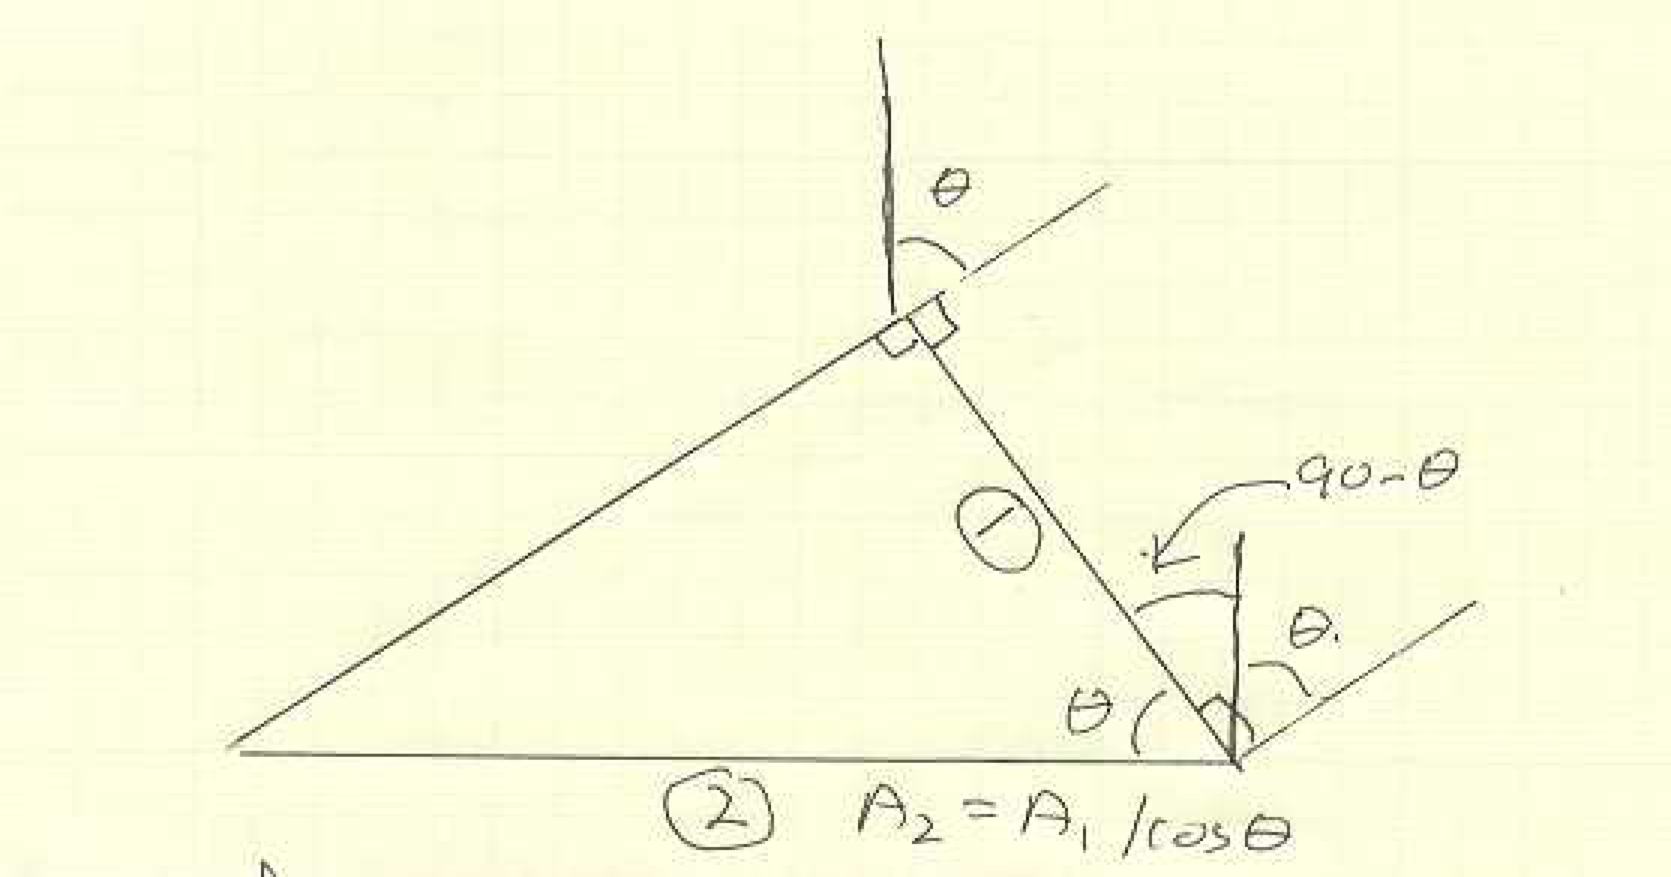 θ
90-θ
①
θ.
θ
② A₂ = A₁ /cosθ